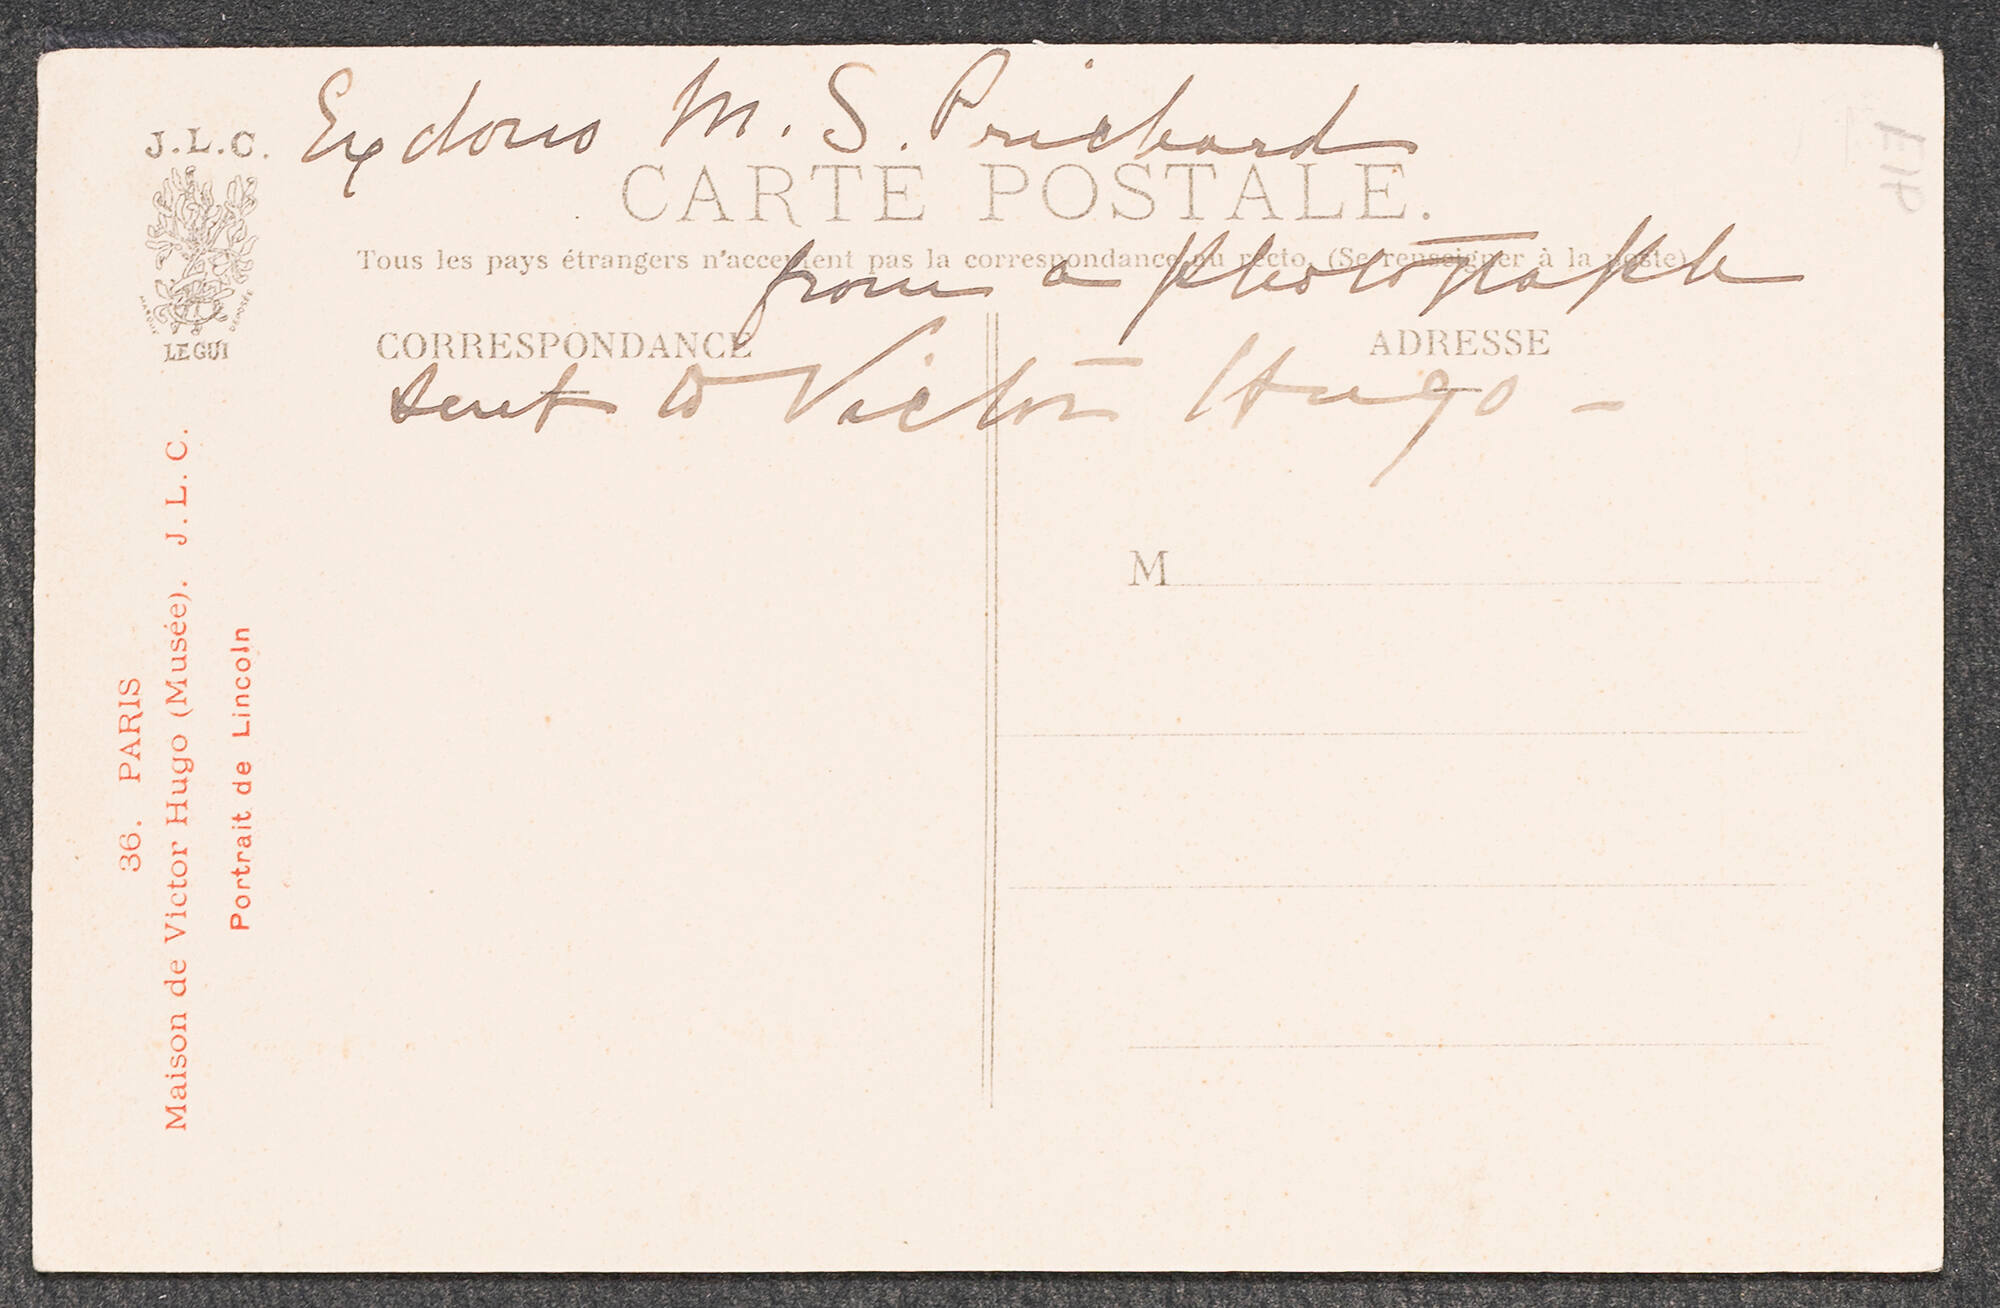 Ex dono M. S. Prichard
J.L.C.
CARTE POSTALE.
Tous les pays étrangers n'acceptent pas la correspondance au recto. (Se renseigner à la poste)
from a photograph
CORRESPONDANCE
ADRESSE
sent to Victor Hugo –
MARQUE DÉPOSÉE
LE GUI
M
36. PARIS
Maison de Victor Hugo (Musée). J. L. C.
Portrait de Lincoln